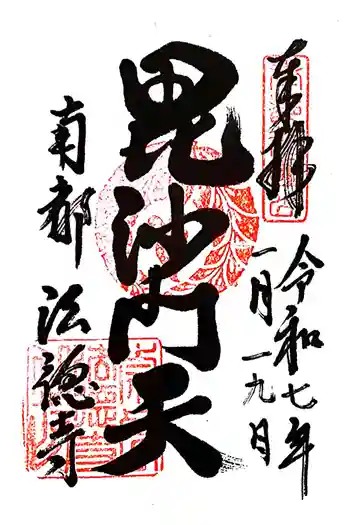 奉拝
令和七年
一月一九日
毘沙門天
南都
法徳寺